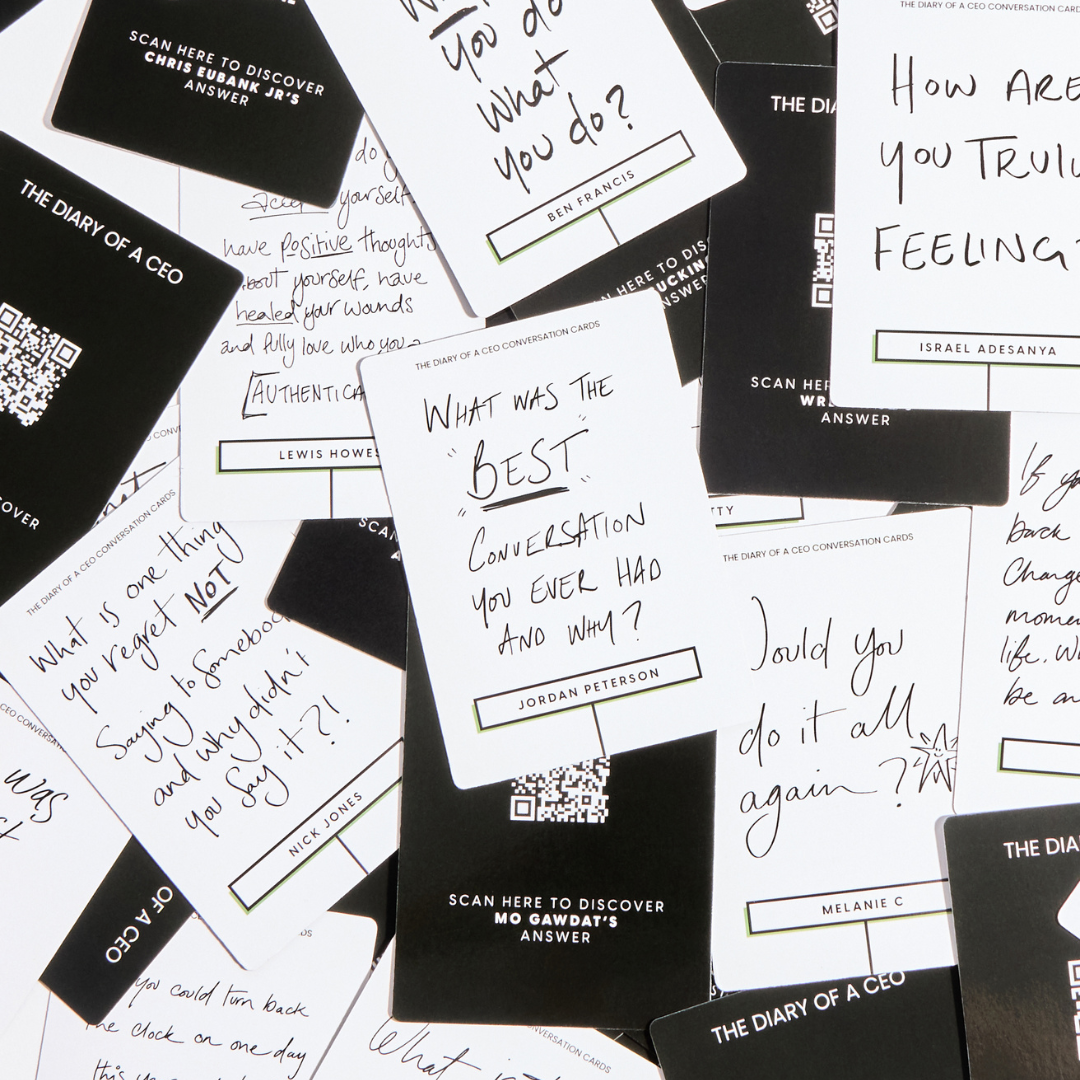 SCAN HERE TO DISCOVER
CHRIS EUBANK JR'S
ANSWER
you do
What
you do?
BEN FRANCIS
THE DIARY OF A CEO CONVERSATION CARDS
HOW ARE
YOU TRULY
FEELING?
ISRAEL ADESANYA
THE DIARY OF A CEO
do
yourself.
have positive thoughts
about yourself, have
healed your wounds
and fully love who you
[AUTHENTICA
LEWIS HOWES
HERE TO DIS
UCKING
NSWER
THE DIA
SCAN HER
WRE
ANSWER
THE DIARY OF A CEO CONVERSATION CARDS
WHAT WAS THE
"BEST"
"CONVERSATION
YOU EVER HAD
AND WHY?
JORDAN PETERSON
OVER
CONV
SCAN
TTY
THE DIARY OF A CEO CONVERSATION CARDS
What is one thing
you regret NOT
Saying to Somebod
and why didn't
you Say it?!
NICK JONES
THE DIARY OF A CEO CONVERSATION CARDS
Would you
do it all
again?
MELANIE C
If yo
back
Change
mome
life. W
be an
CEO CONVERSAT
was
SCAN HERE TO DISCOVER
MO GAWDAT'S
ANSWER
OF A CEO
DS
you could turn back
the clock on one day
this
THE DIARY OF A CEO
THE DIA
NVERSATION CARDS
What is